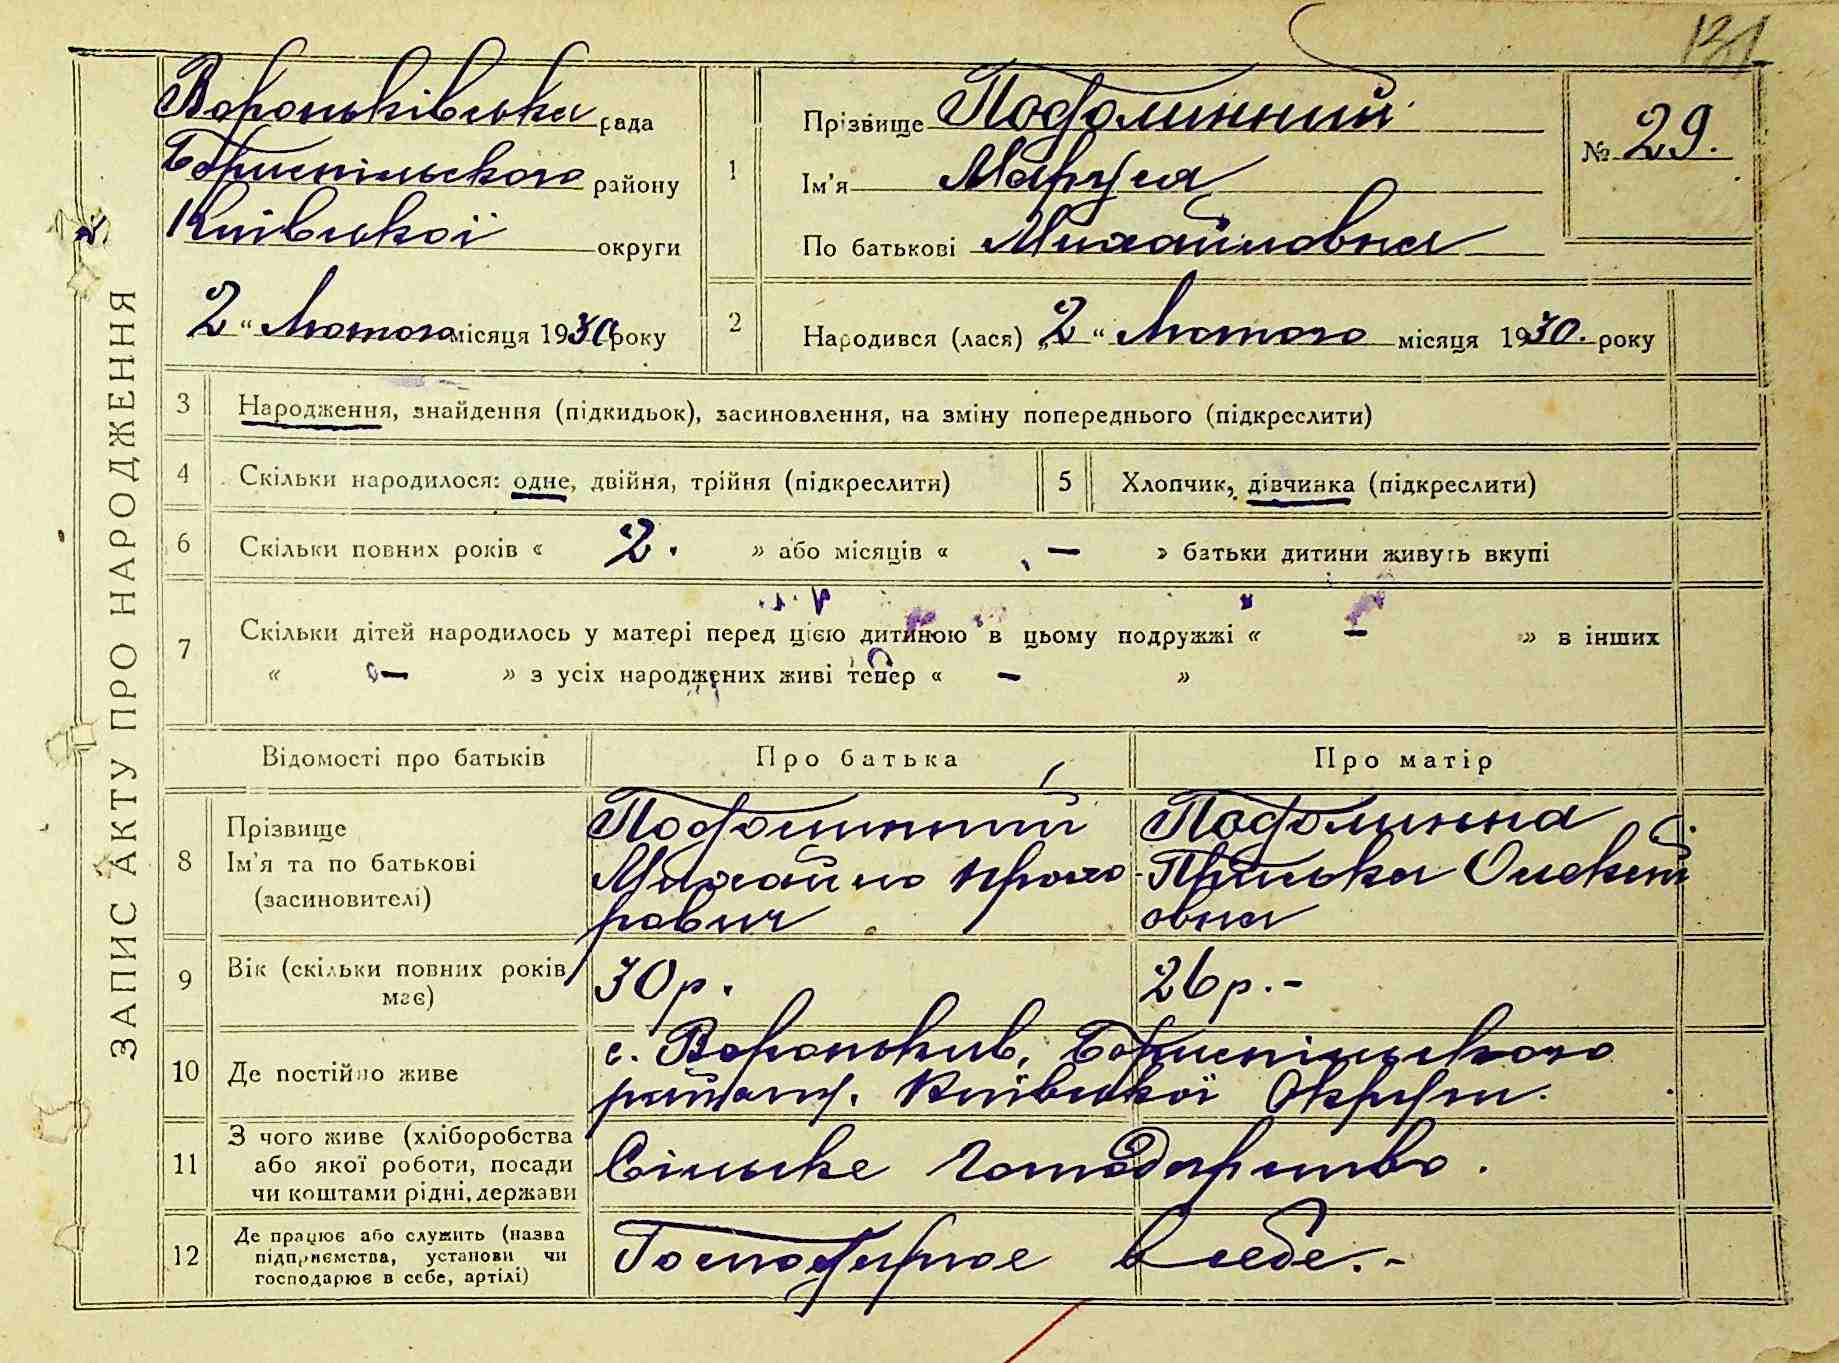 131
ЗАПИС АКТУ ПРО НАРОДЖЕННЯ
Вороньківська рада
Бориспільського району
Київської округи
2 " Лютого місяця 1930 року
1
Прізвище Подолинний
Ім'я Маруся
По батькові Михайловна
№ 29.
2
Народився (лася) „2 " Лютого місяця 1930. року
3 Народження, знайдення (підкидьок), засиновлення, на зміну попереднього (підкреслити)
4 Скільки народилося: одне, двійня, трійня (підкреслити)
5 Хлопчик, дівчинка (підкреслити)
6 Скільки повних років « 2. » або місяців « — » батьки дитини живуть вкупі
7 Скільки дітей народилось у матері перед цією дитиною в цьому подружжі « — » в інших
« — » з усіх народжених живі тепер « — »
Відомості про батьків
Про батька
Про матір
8 Прізвище
Ім'я та по батькові
(засиновителі)
Подолинний
Михайло Прохо-
рович
Подолинна
Прiська Олексій
овна
9 Вік (скільки повних років
має)
30 р.
26 р. -
10 Де постійно живе
с. Вороньків, Бориспільського
району. Київської Округи.
11 З чого живе (хліборобства
або якої роботи, посади
чи коштами рідні, держави
Сільське Господарство.
12 Де працює або служить (назва
підприємства, установи чи
господарює в себе, артілі)
Господарює в себе. -